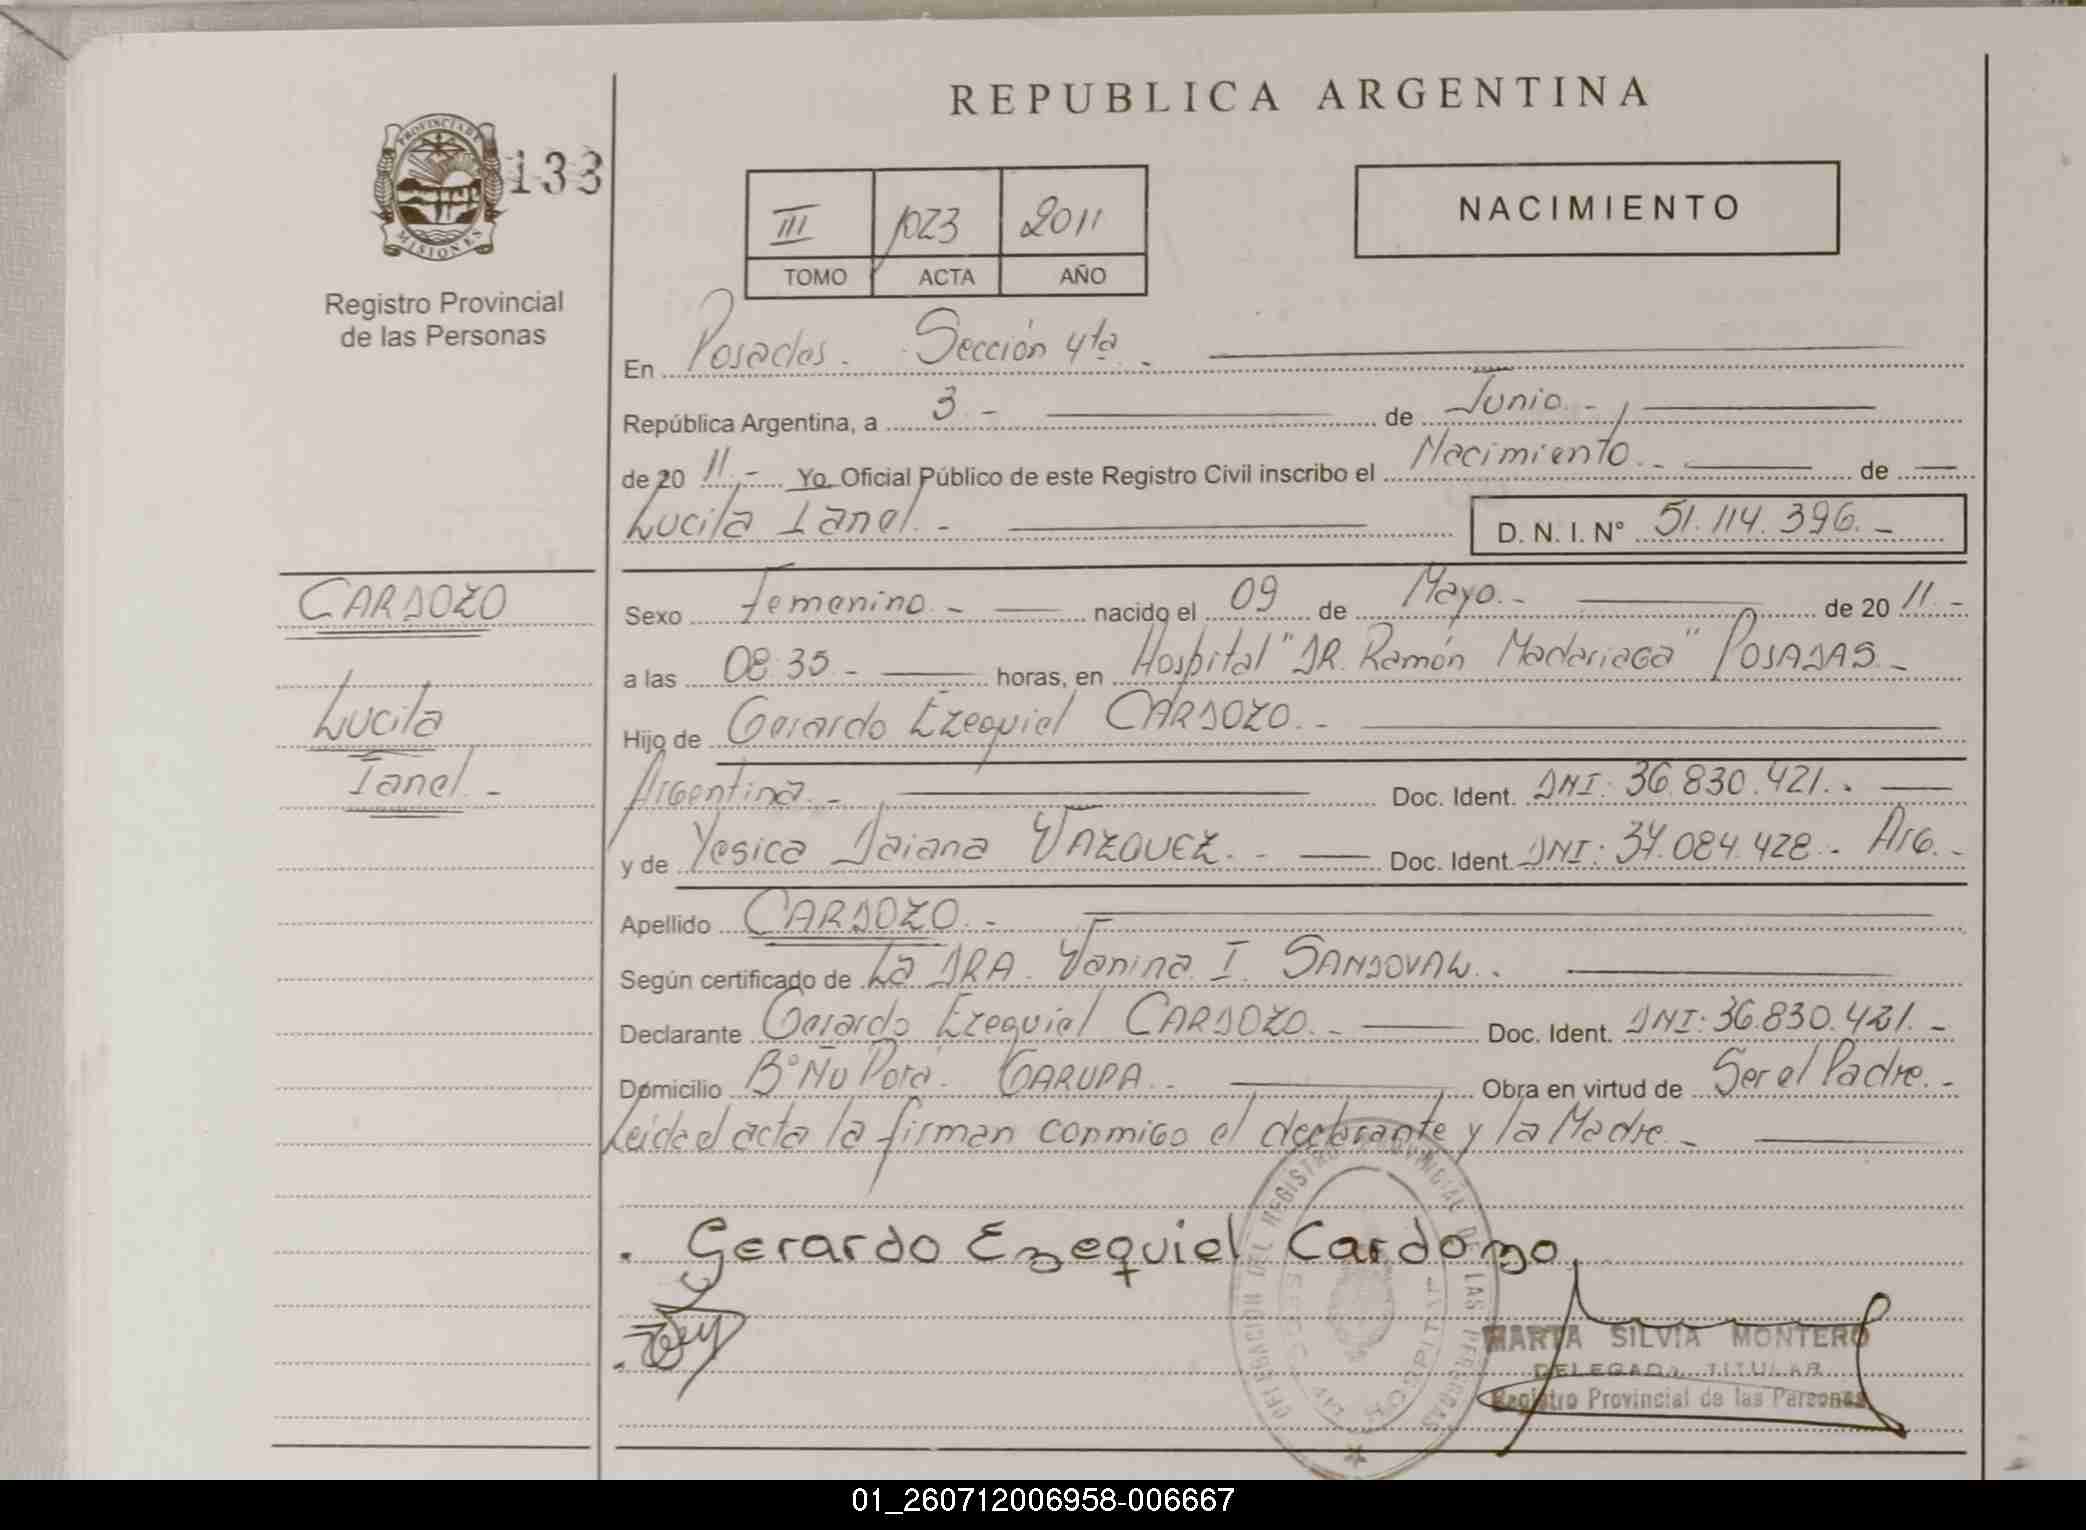 REPUBLICA ARGENTINA
PROVINCIA DE
MISIONES
133
Registro Provincial
de las Personas
III 1023 2011
TOMO ACTA AÑO
NACIMIENTO
En Posadas. Sección 4ta -
República Argentina, a 3 - de Junio -
de 20 11 - Yo Oficial Público de este Registro Civil inscribo el Nacimiento - de
Lucila Ianel. -
D. N. I. N° 51.114.396. -
CARDOZO
Lucila
Ianel. -
Sexo Femenino - nacido el 09 de Mayo - de 20 11 -
a las 08:35 - horas, en Hospital "DR. Ramón Madariaga" POSADAS -
Hijo de Gerardo Ezequiel CARDOZO. -
Argentina - Doc. Ident. DNI: 36.830.421. -
y de Yesica Daiana VAZQUEZ. - Doc. Ident. DNI: 37.084.428 - Arg. -
Apellido CARDOZO. -
Según certificado de La DRA. Vanina I. SANDOVAL.
Declarante Gerardo Ezequiel CARDOZO. - Doc. Ident. DNI: 36.830.421. -
Domicilio B° Ñu Porá. GARUPA. - Obra en virtud de Ser el Padre. -
Leida el acta la firman conmigo el declarante y la Madre -
Gerardo Ezequiel Cardozo
DELEGACION DEL REGISTRO PROVINCIAL DE LAS PERSONAS
HOSPITAL
MARTA SILVIA MONTERO
DELEGADA TITULAR
Registro Provincial de las Personas
01_260712006958-006667